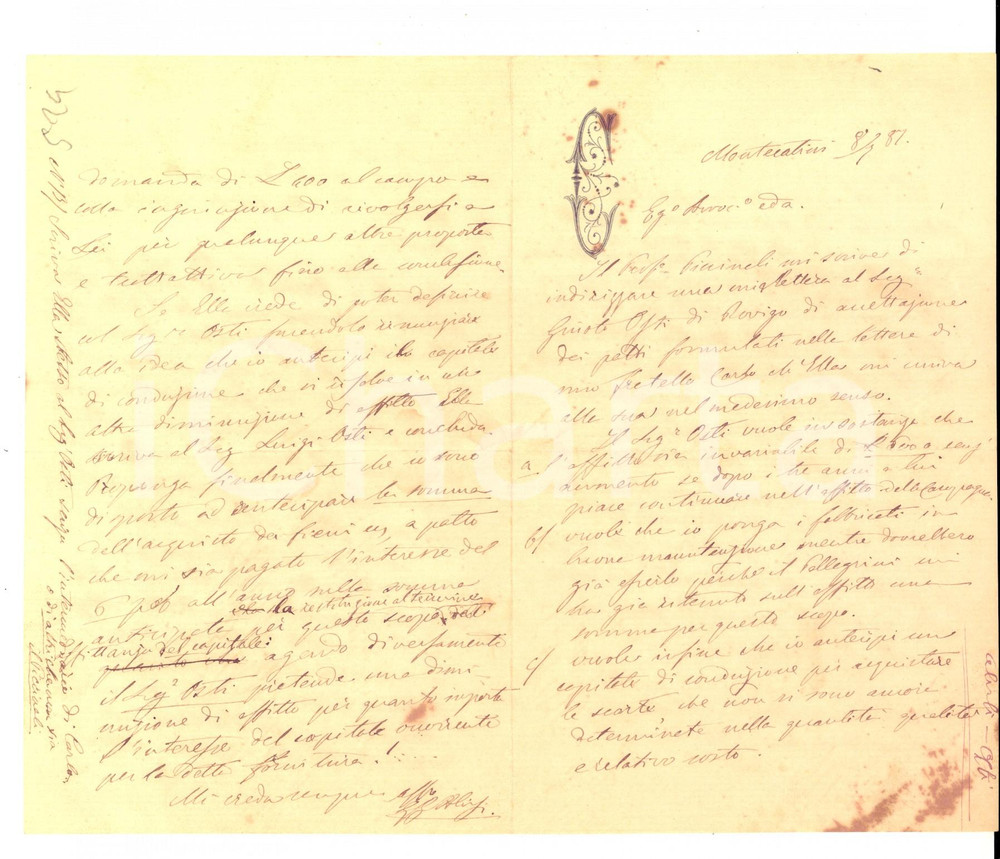 Montecatini 8/9 87.
Eg.o Avvoc.o
Il Prof. Piccinali mi scrive di
indirizzare una miglettera al Sig.r
Guido Osti di Rovigo di accettazione
dei patti formulati nella lettera di
mio fratello Carlo ch'Ella mi univa
alla sua nel medesimo senso.
Il Sig.r Osti vuole in sostanza che
a/ l'affitto sia invariabile di L.
aumento se dopo i tre anni a lui
piace continuare nell'affitto della Campagna.
b/ vuole che io ponga i fabbricati in
buona manutenzione mentre dovrebbero
già esserlo perchè il Pellegrini mi
ha già ritenuto sull'affitto una
somma per questo scopo.
c/ vuole infine che io anticipi un
capitale di conduzione per acquistare
le scorte che non si sono ancora
determinate nella quantità qualità
e relativo costo.
domanda di L 400 al campo e
colla ingiunzione di rivolgersi a
Lei per qualunque altra proposta
e trattativa fino alla conclusione.
Se Ella crede di poter definire
col Sig.r Osti facendolo rinunziare
alla idea che io anticipi il capitale
di conduzione che si risolve in una
altra diminuzione di affitto Ella
scriva al Sig. Luigi Osti e concluda.
Proponga finalmente che io sono
disposto ad anticipare la somma
dell'acquisto dei fieni, a patto
che mi sia pagato l'interesse del
6 p% all'anno sulla somma
la restituzione al termine
anticipata per questo scopo
affittanza del capitale:
agendo diversamente
il Sig.r Osti pretende una dimi
nuzione di affitto per quanto importa
l'interesse del capitale occorrente
per la detta fornitura!
Mi creda sempre
Scriva Ella stesso al Sig Osti senza l'intermediario di Carlo
e di altri chiunque sia